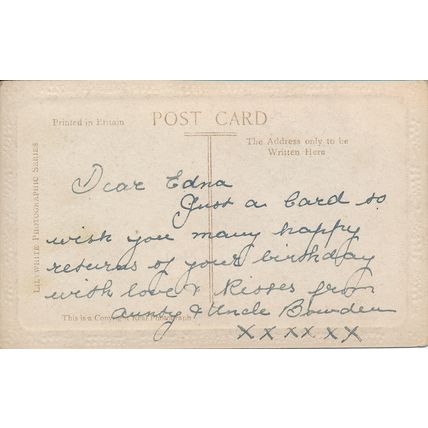 Printed in Britain
POST CARD
The Address only to be
Written Here
LILYWHITE PHOTOGRAPHIC SERIES
Dear Edna
Just a Card to
wish you many happy
returns of your birthday
with love & Kisses from
Aunty & Uncle Bowden
This is a Copyright Real Photograph
X X X X X X